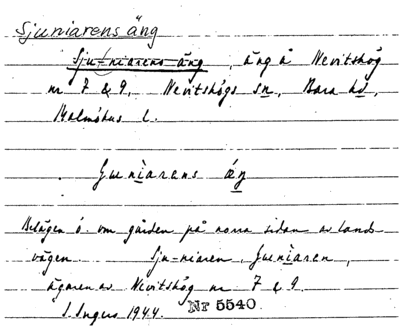 Sjuniarens äng
Sju-niarens äng, äng å Nevitshög
nr 7 & 9, Nevitshögs sn, Bara hd,
Malmöhus l.
ʃuniarens ǽŋ
Belägen ö. om gården på norra sidan av lands-
vägen Sju-niaren, ʃuniaren,
ägaren av Nevitshög nr 7 & 9.
S. Ingers 1944. Nr 5540